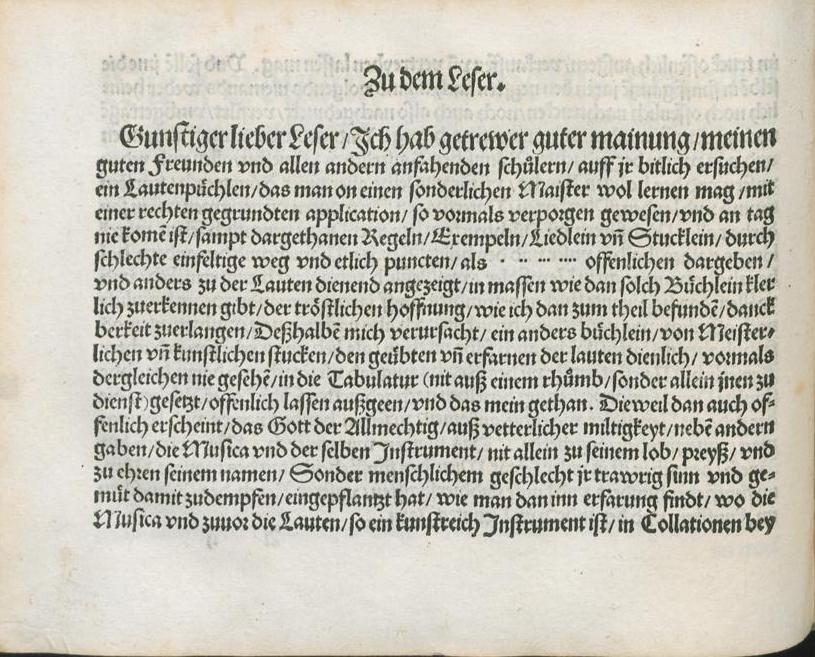 Zu dem Leser.
Gunstiger lieber Leser/Jch hab getrewer guter mainung/meinen
guten Freunden vnd allen andern anfahenden schůlern/ auff jr bitlich ersuchen/
ein Lautenpůchlen/das man on einen sonderlichen Maister wol lernen mag/mit
einer rechten gegrundten application/ so vormals verporgen gewesen/vnd an tag
nie komẽ ist/sampt dargethanen Regeln/Exempeln/Liedlein vñ Stucklein/durch
schlechte einfeltige weg vnd etlich puncten/als · ·· ··· ···· offenlichen dargeben/
vnd anders zu der Lauten dienend angezeigt/in massen wie dan solch Bůchlein kler
lich zuerkennen gibt/der trőstlichen hoffnung/wie ich dan zum theil befundẽ/danck
berkeit zuerlangen/Deßhalbẽ mich verursacht/ein anders bůchlein/von Meister⸗
lichen vñ kunstlichen stucken/den geübten vñ erfarnen der lauten dienlich/ vormals
dergleichen nie gesehẽ/in die Tabulatur (nit auß einem rhůmb/sonder allein jnen zu
dienst)gesetzt/offenlich lassen außgeen/vnd das mein gethan. Dieweil dan auch of⸗
fenlich erscheint/das Gott der Allmechtig/auß vetterlicher miltigkeyt/nebẽ andern
gaben/die Musica vnd der selben Jnstrument/ nit allein zu seinem lob/preyß/ vnd
zu ehren seinem namen/ Sonder menschlichem geschlecht jr trawrig sinn vnd ge⸗
můt damit zudempfen/eingepflantzt hat/ wie man dan inn erfarung findt/ wo die
Musica vnd zuuor die Lauten/so ein kunstreich Jnstrument ist/ in Collationen bey